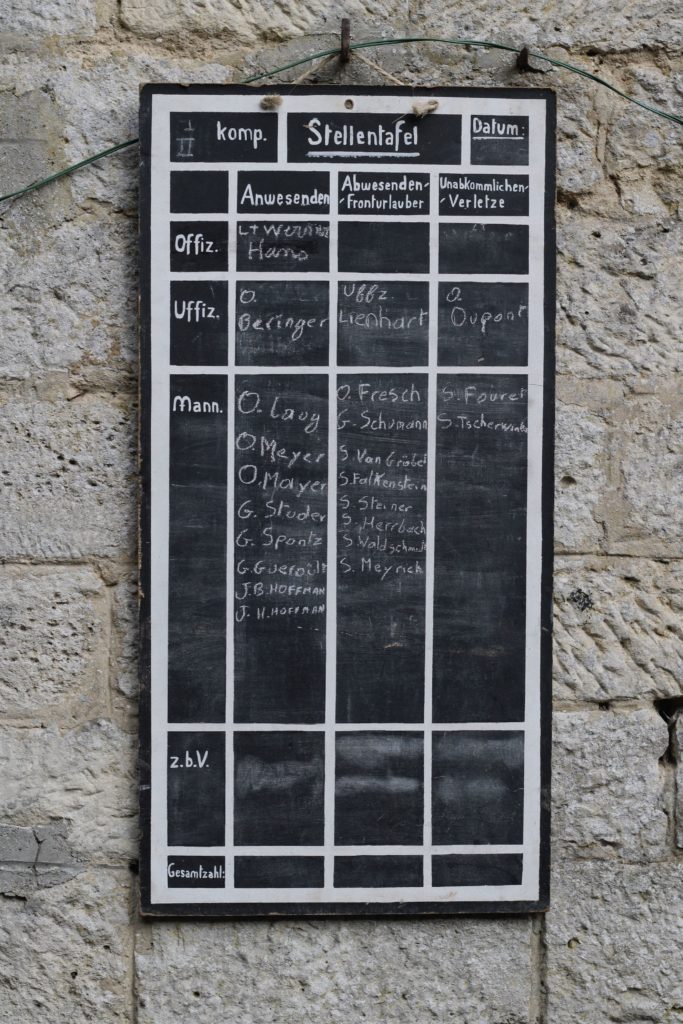 I
II komp.
Stellentafel
Datum:
Anwesenden
Abwesenden-
-Fronturlauber
Unabkömmlichen-
-Verletze
Offiz.
Lt Werner
Hans
Uffiz.
O.
Beringer
Uffz.
Lienhart
O.
Dupont
Mann.
O. Laug
O. Meyer
O. Mayer
G. Studer
G. Spontz
G. Gueroult
J.B. HOFFMAN
J. H. HOFFMAN
O. Fresch
G. Schumann
S. Van Gräbet
S. Falkenstein
S. Steiner
S. Herrbach
S. Waldschmidt
S. Meyrich
S. Fouret
S.
z.b.V.
Gesamtzahl: